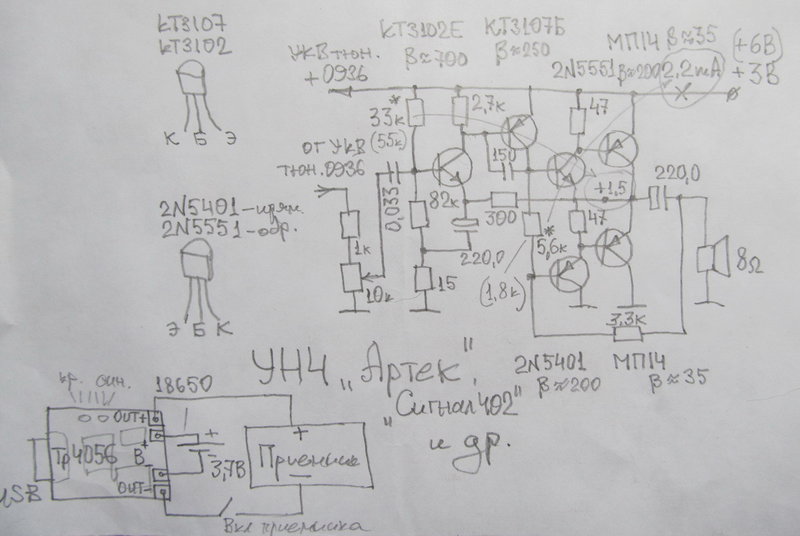 КТ3107
КТ3102
К Б Э
2N5401-прям.
2N5551-обр.
Э Б К
КТ3102Е
β≈700
КТ3107Б
β≈250
МП14 β≈35
2N5551 β≈200
2,2mA
(+6В)
+3В
УКВ тюн.
+0936
*
33к
(55к)
2,7к
47
от УКВ
тюн.0936
0,033
150
+1,5
220,0
82к
300
47
1к
*
5,6к
220,0
(1,8к)
10к
15
8Ω
3,3к
2N5401
β≈200
МП14
β≈35
УНЧ „Артек",
„Сигнал 402"
и др.
кр. син.
18650
OUT+
Тр4056
B
+
-
+
3,7В
OUT-
USB
+
Приемник
-
Вкл приемника